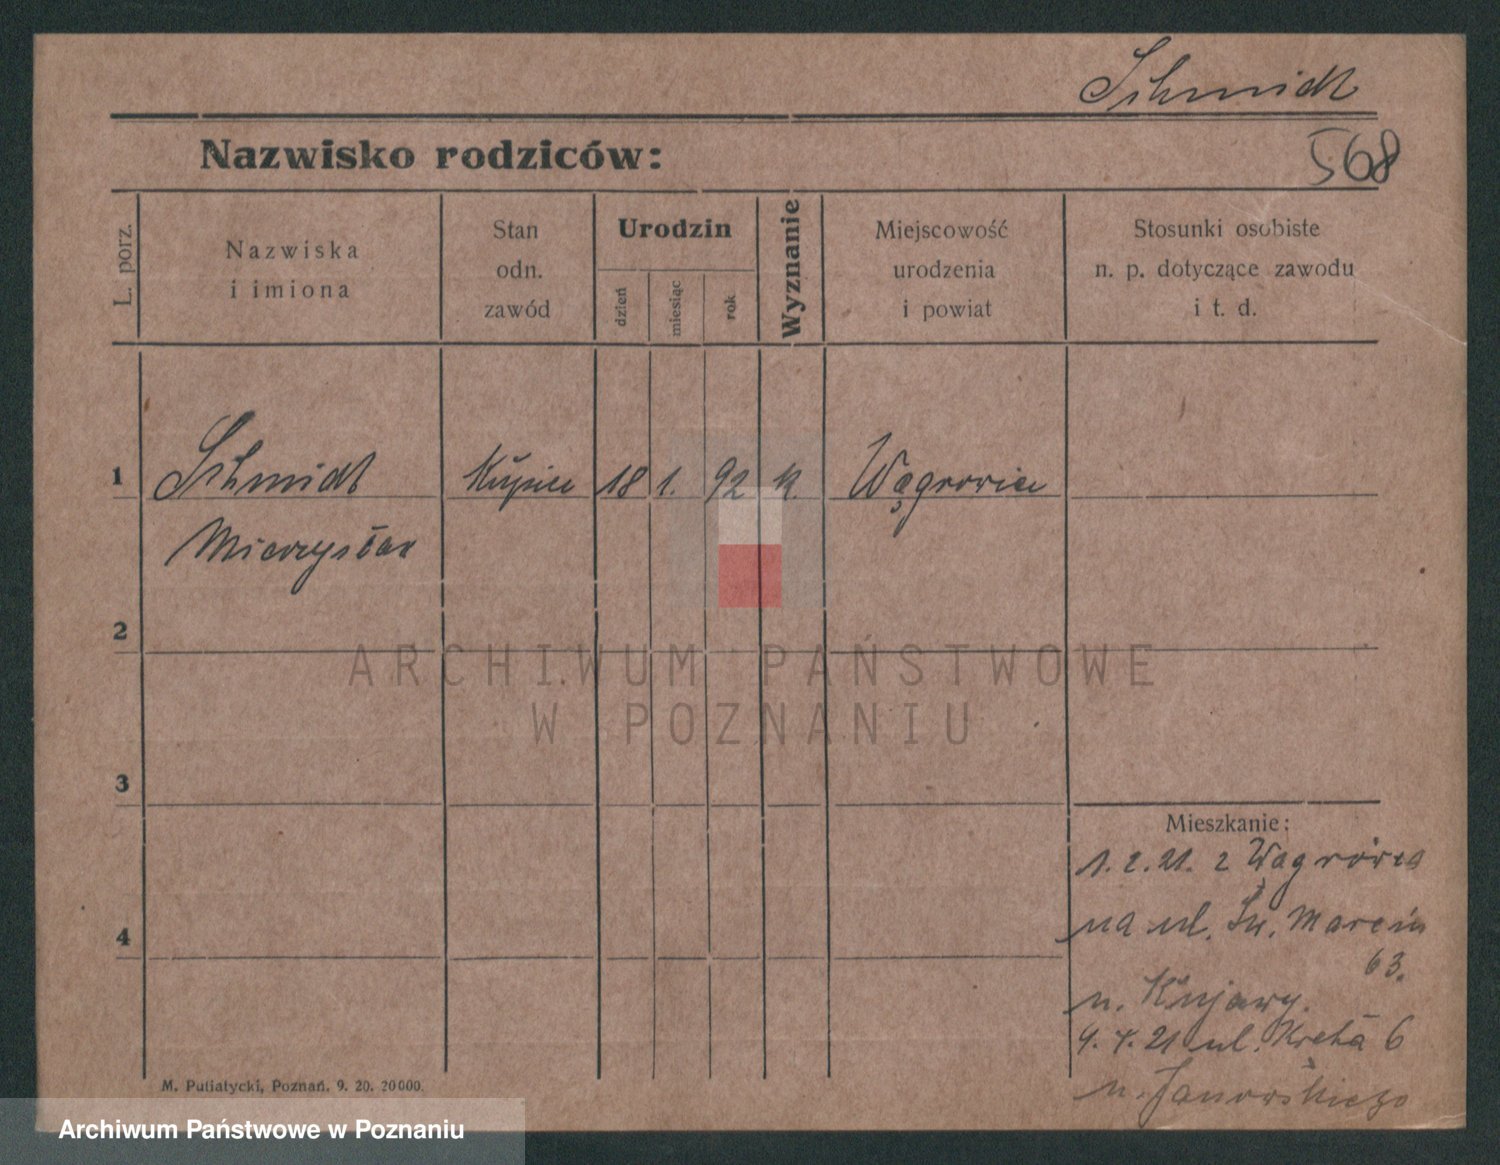 Schmidt
Nazwisko rodziców:
568
L. porz.
Nazwiska
i imiona
Stan
odn.
zawód
Urodzin
dzień
miesiąc
rok
Wyznanie
Miejscowość
urodzenia
i powiat
Stosunki osobiste
n. p. dotyczące zawodu
i t. d.
1
Schmidt Kupiec 18 1. 92 k Wągrowiec
Mieczysław
2
ARCHIWUM PAŃSTWOWE
W POZNANIU
3
Mieszkanie:
1. 2. 21. z Wągrówca
na ul. Św. Marcin
63.
4
u. Kujawy.
9. 4. 21 ul. Kręta 6
u. Janowskiego
M. Putiatycki, Poznań. 9. 20. 20000.
Archiwum Państwowe w Poznaniu